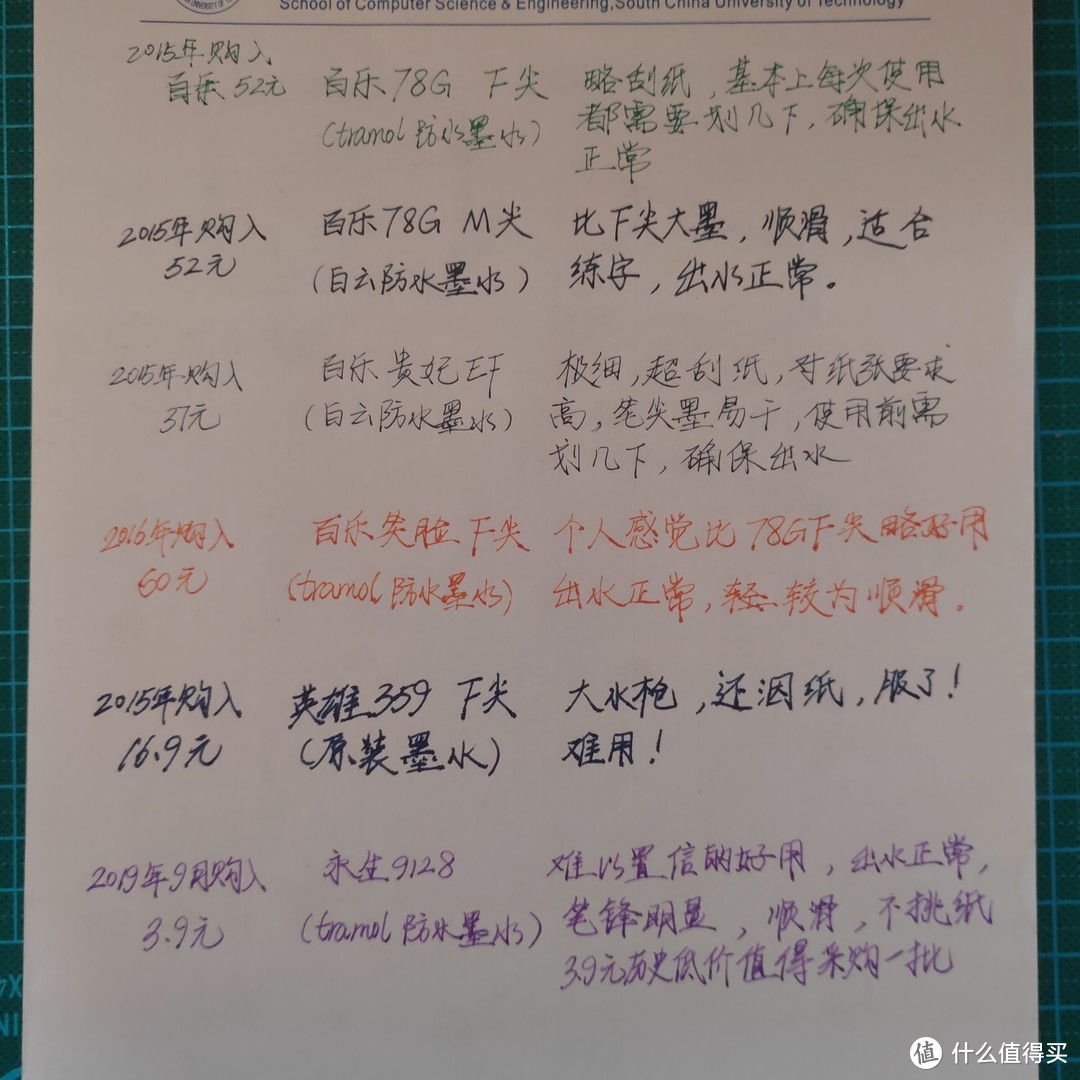 School of Computer Science & Engineering, South China University of Technology
2015年购入
百乐52元
百乐78G F尖
(tramol防水墨水)
略刮纸，基本上每次使用
都需要划几下，确保出水
正常
2015年购入
52元
百乐78G M尖
(白云防水墨水)
比F尖大墨，顺滑，适合
练字，出水正常。
2015年购入
37元
百乐贵妃EF
(白云防水墨水)
极细，超刮纸，对纸张要求
高，笔尖墨易干，使用前需
划几下，确保出水
2016年购入
60元
百乐笑脸F尖
(tramol防水墨水)
个人感觉比78GF尖略好用
出水正常，轻较为顺滑。
2015年购入
16.9元
英雄359 F尖
(原装墨水)
大水枪，还洇纸，服了！
难用！
2019年9月购入
3.9元
永生9128
(tramol防水墨水)
难以置信的好用，出水正常，
笔锋明显，顺滑，不挑纸
3.9元历史低价值得采购一批
值 什么值得买